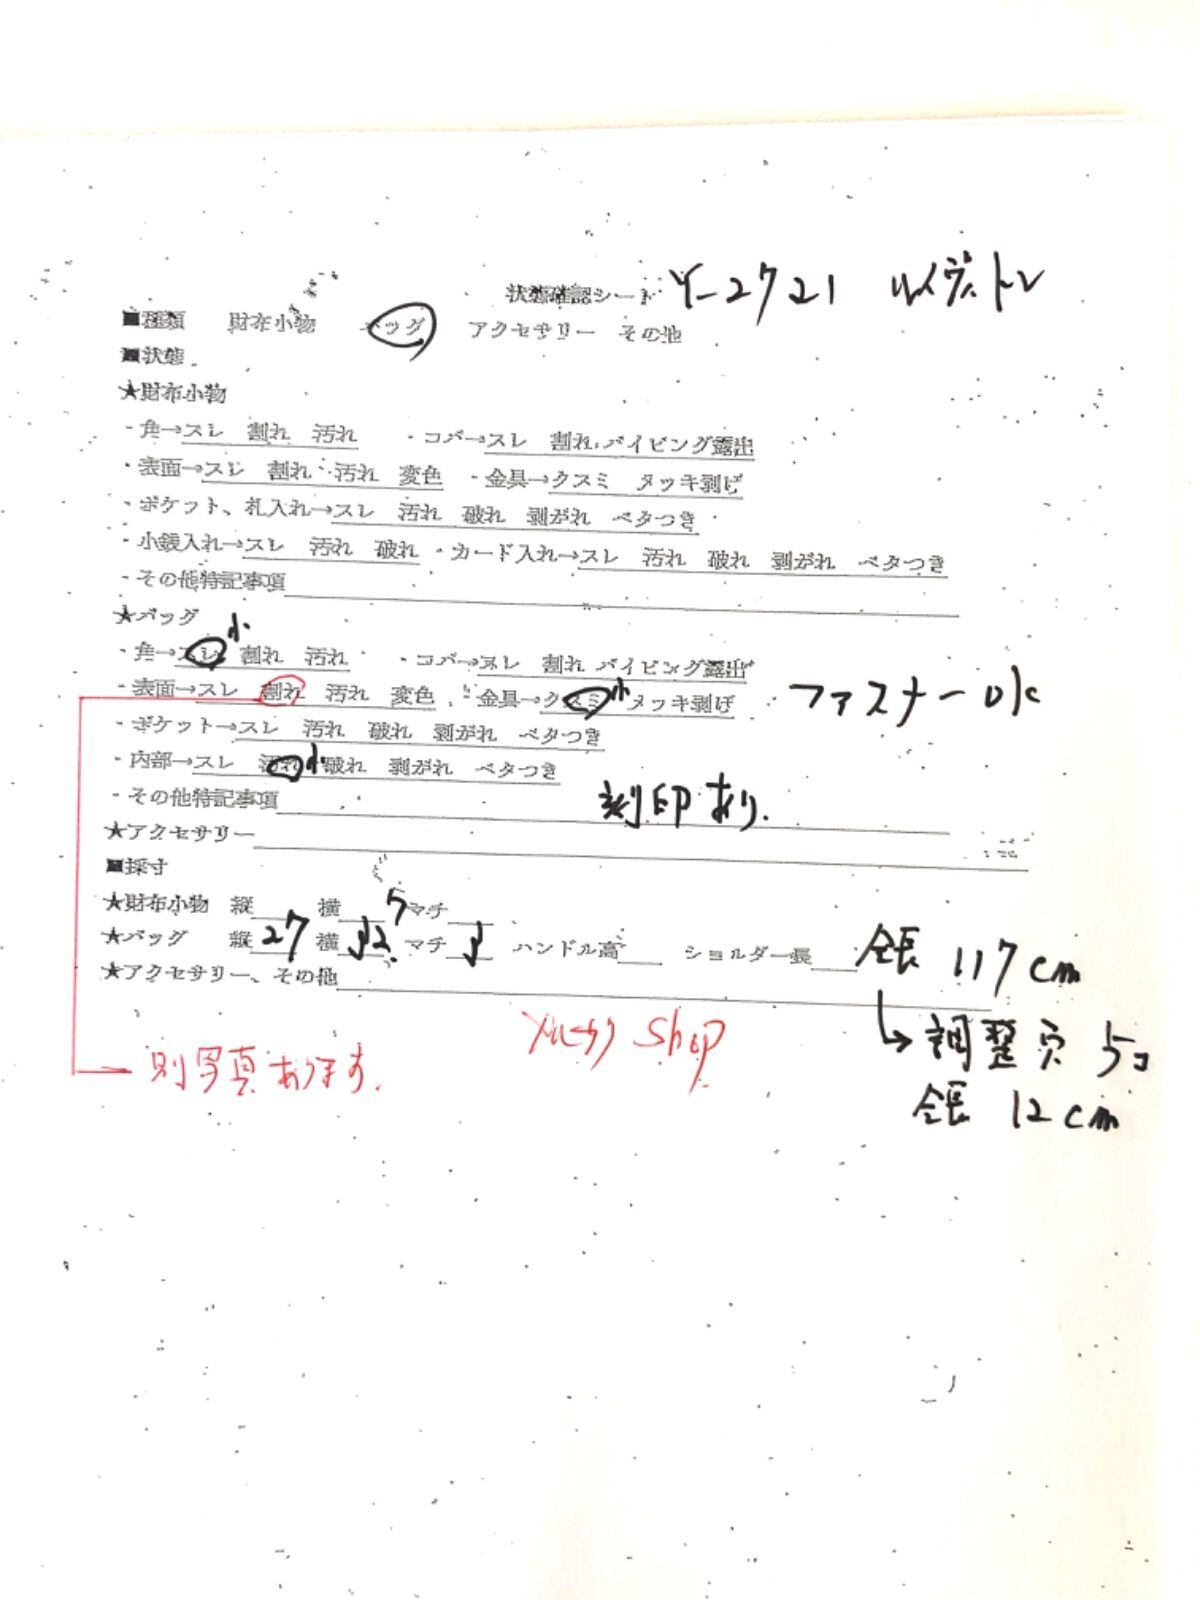 状態確認シート Y-2721 ルイヴィトン
■種類 財布小物 バッグ アクセサリー その他
■状態
★財布小物
・角→スレ 割れ 汚れ ・コバ→スレ 割れ パイピング露出
・表面→スレ 割れ 汚れ 変色 ・金具→クスミ メッキ剥げ
・ポケット、札入れ→スレ 汚れ 破れ 剥がれ ベタつき
・小銭入れ→スレ 汚れ 破れ ・カード入れ→スレ 汚れ 破れ 剥がれ ベタつき
・その他特記事項
★バッグ
・角→スレ小 割れ 汚れ ・コバ→スレ 割れ パイピング露出
・表面→スレ 割れ 汚れ 変色 ・金具→クスミ小 メッキ剥げ ファスナーOK
・ポケット→スレ 汚れ 破れ 剥がれ ベタつき
・内部→スレ 汚れ小 破れ 剥がれ ベタつき
・その他特記事項 刻印あり.
★アクセサリー
■採寸
★財布小物 縦 横 マチ
★バッグ 縦 27 横 マチ ハンドル高 ショルダー長 全長 117cm
★アクセサリー、その他
→調整穴 5コ
Shop
別写真あります.
全長 12cm